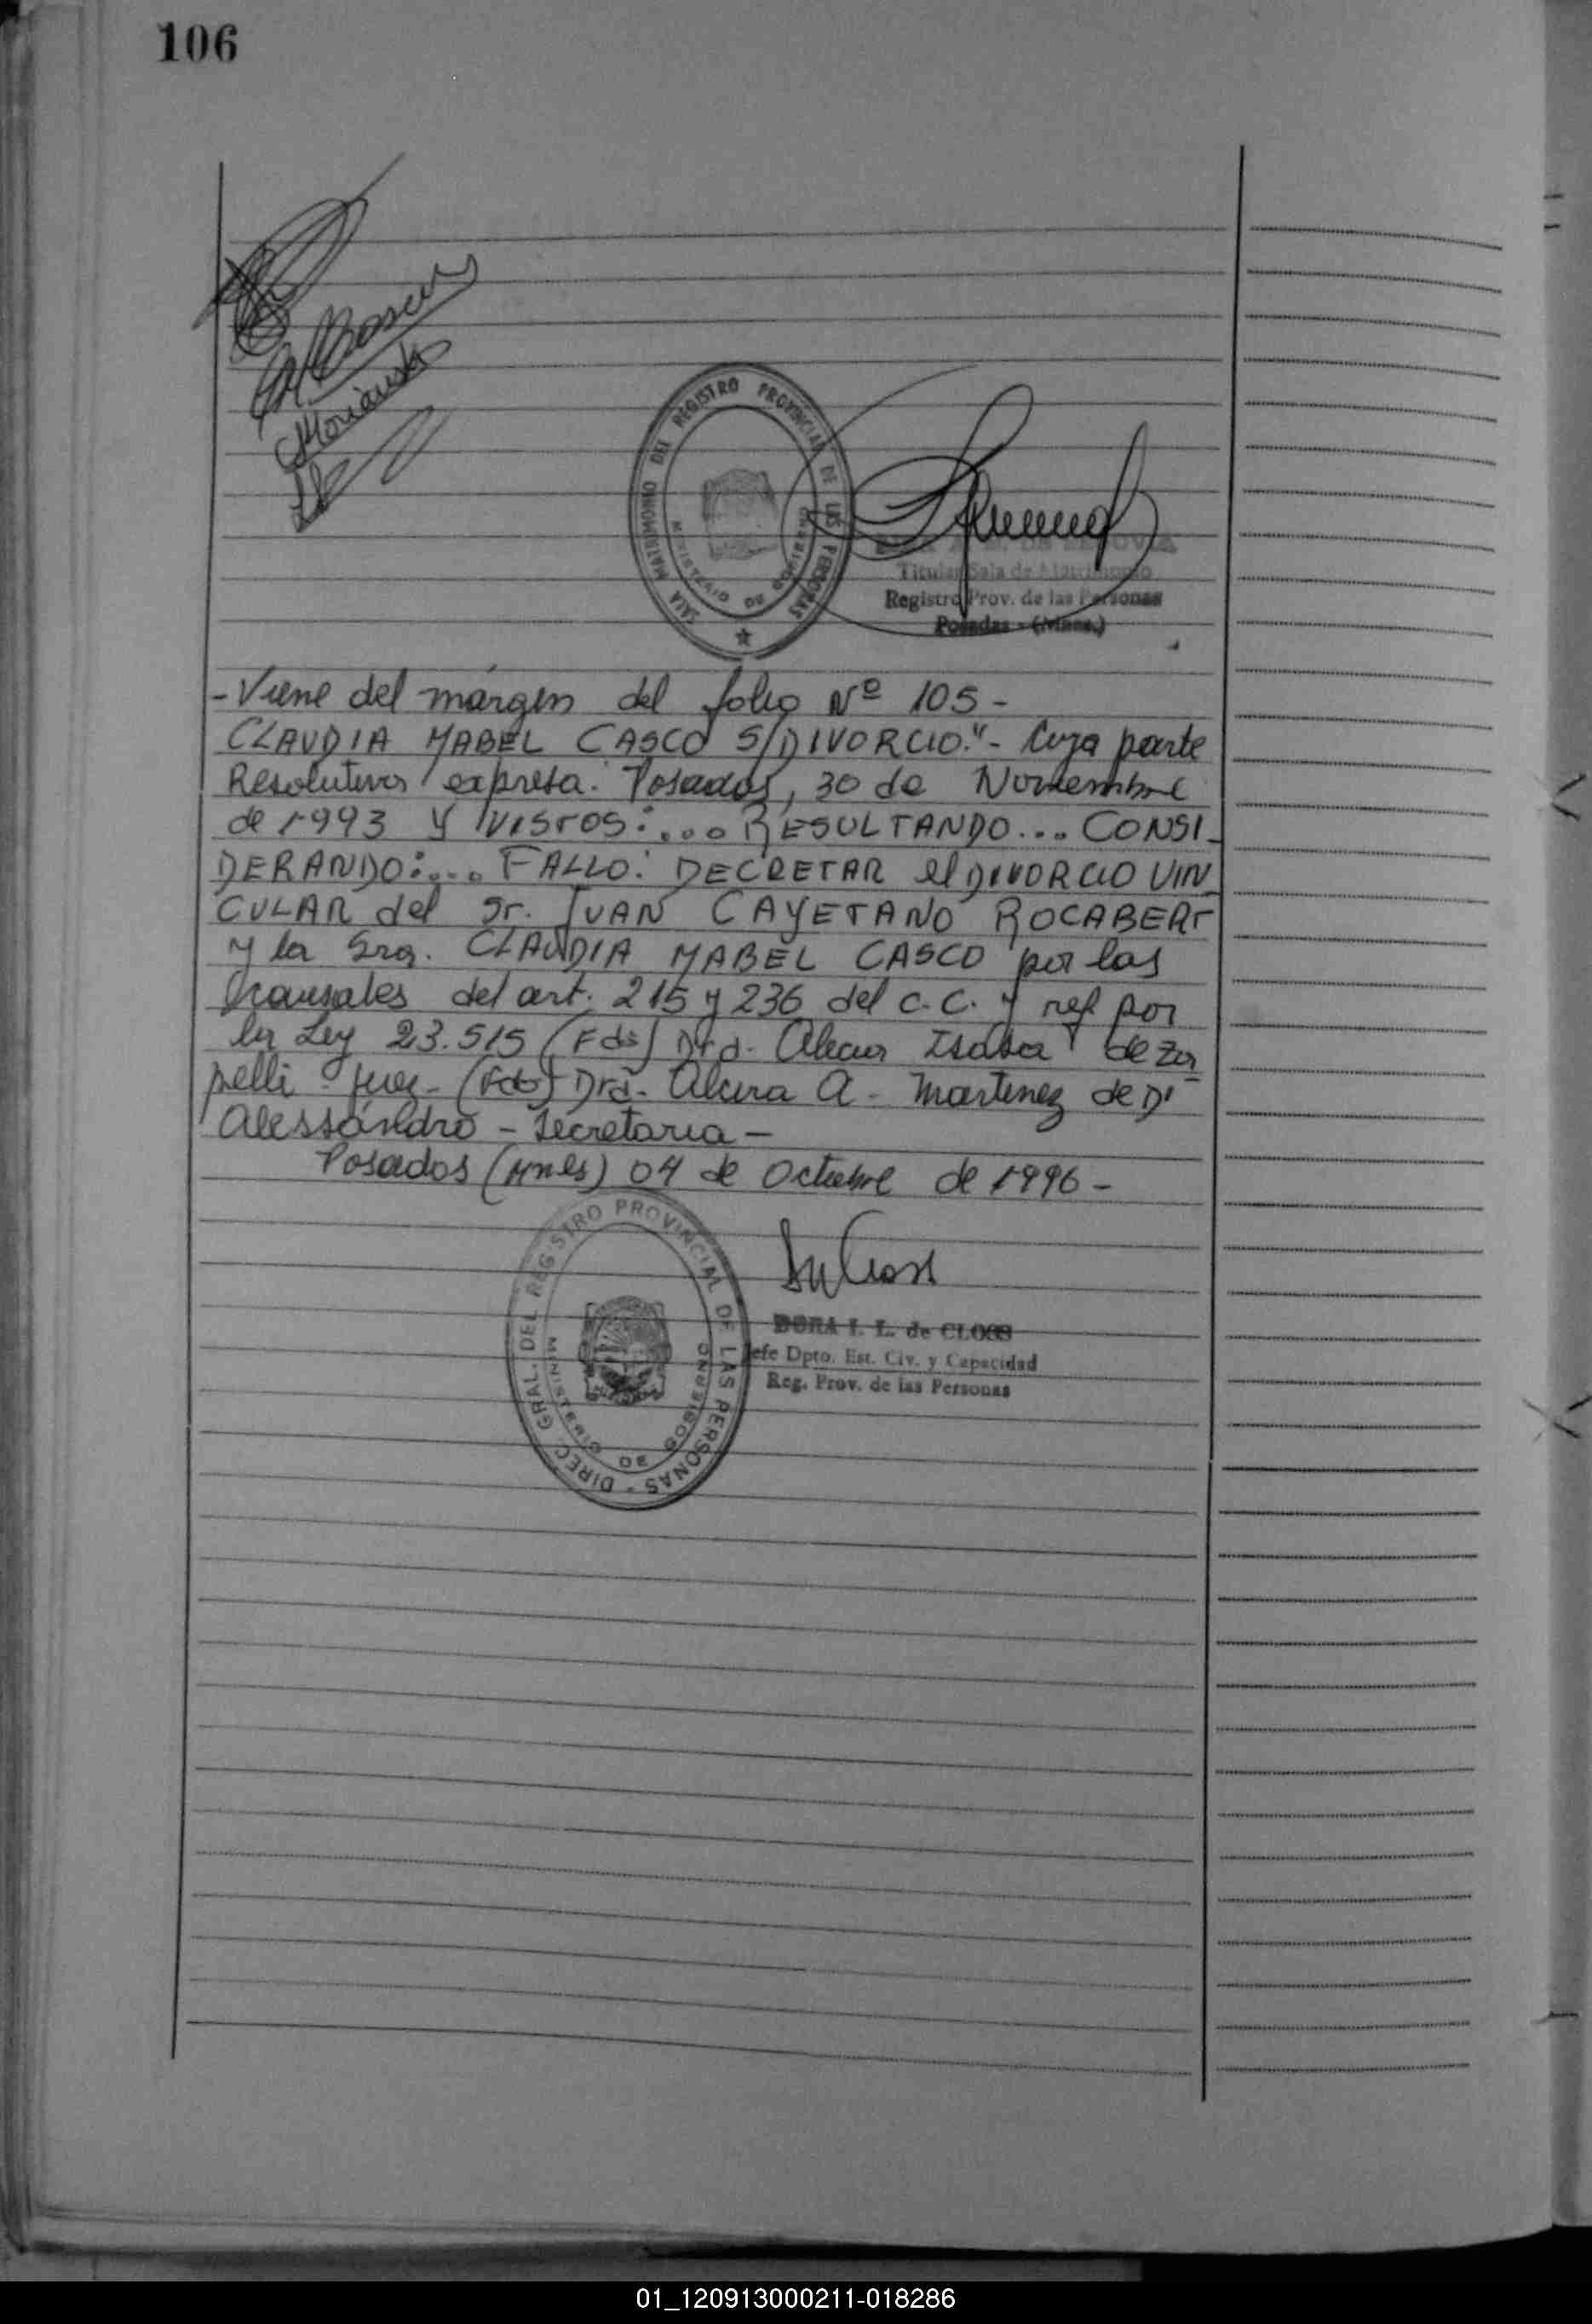 106
SALA MATRIMONIO DEL REGISTRO PROVINCIAL DE LAS PERSONAS
MINISTERIO DE GOBIERNO
Titular Sala de Matrimonio
Registro Prov. de las Personas
Posadas - (Mnes.)
- Viene del márgen del folio Nº 105 -
CLAUDIA MABEL CASCO S/DIVORCIO."- Cuya parte
Resolutiva expresa: Posadas, 30 de Noviembre
de 1993 Y VISTOS:... RESULTANDO... CONSI-
DERANDO:... FALLO: DECRETAR el DIVORCIO VIN
CULAR del Sr. JUAN CAYETANO ROCABERT
y la Sra. CLAUDIA MABEL CASCO por las
causales del art. 215 y 236 del C.C. y ref por
la Ley 23.515 (Fdo) Dra. de Za
pelli - Juez - (Fdo) Dra. Alcira A. Martinez de D'
Alessandro - Secretaria -
Posadas (Mnes) 04 de Octubre de 1996 -
DIREC. GRAL. DEL REGISTRO PROVINCIAL DE LAS PERSONAS -
MINISTERIO DE GOBIERNO
DORA I. L. de CLOSS
Jefe Dpto. Est. Civ. y Capacidad
Reg. Prov. de las Personas
01_120913000211-018286